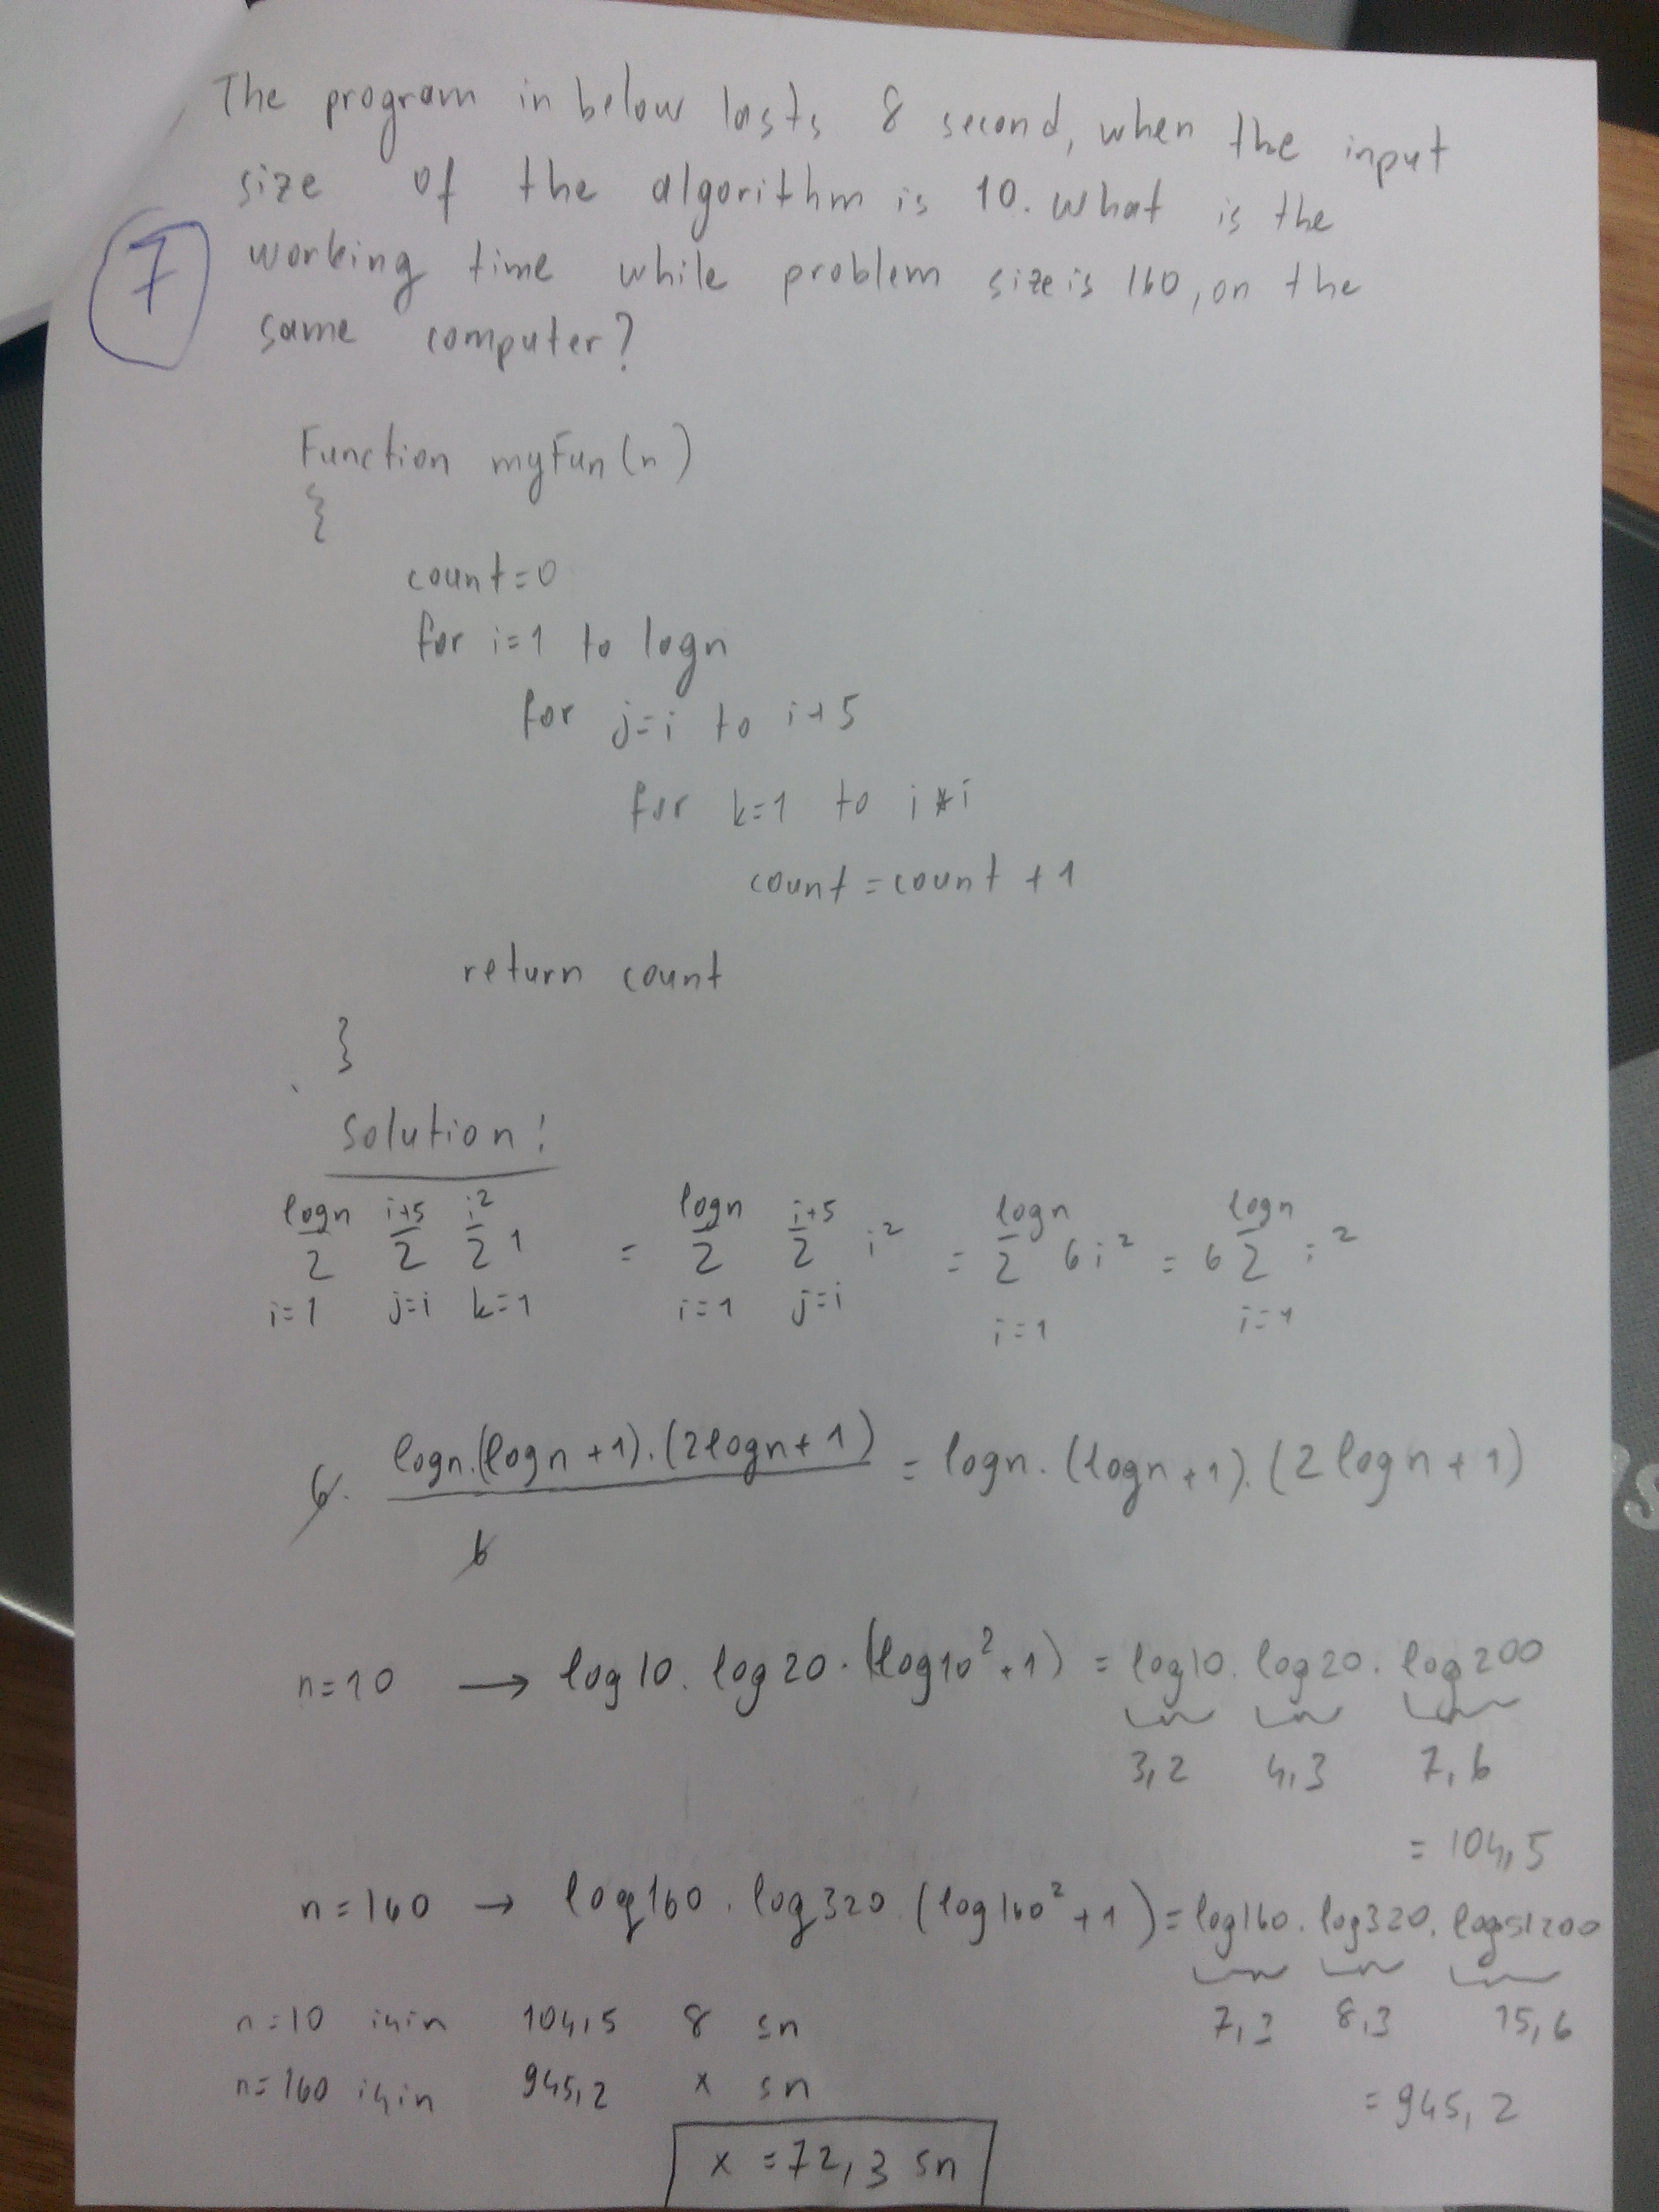 The program in below lasts 8 second, when the input
size of the algorithm is 10. What is the
7
working time while problem size is 160, on the
same computer?
Function myFun(n)
{
count=0
for i=1 to logn
for j=i to i+5
for k=1 to i*i
count=count+1
return count
}
Solution:
logn i+5 i² logn i+5 logn logn
∑ ∑ ∑ 1 = ∑ ∑ i² = ∑ 6i² = 6 ∑ i²
i=1 j=i k=1 i=1 j=i i=1 i=1
6. logn.(logn+1).(2logn+1) = logn.(logn+1).(2logn+1)
6
n=10 → log10.log20.(log10²+1) = log10.log20.log200
3,2 4,3 7,6
= 104,5
n=160 → log160.log320.(log160²+1)=log160.log320.log51200
7,3 8,3 15,6
n=10 için 104,5 8 sn
n=160 için 945,2 x sn
= 945,2
x = 72,3 sn